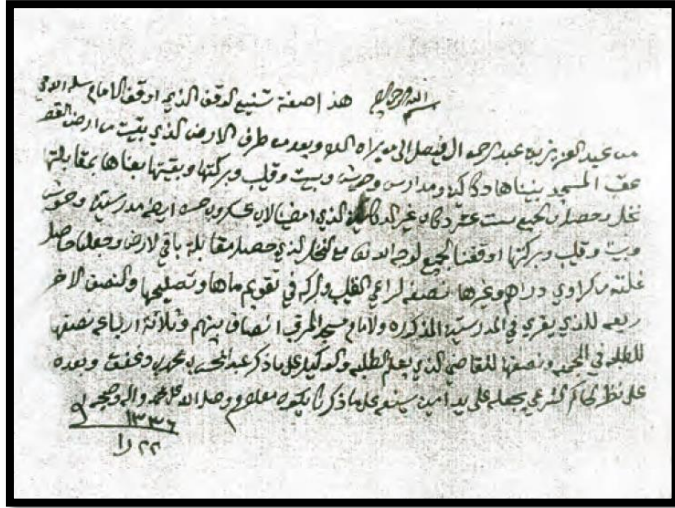 بسم الله الرحمن الرحيم هذا صفة الوقف الذي اوقف الامام سلمه الله
من عبد العزيز بن عبد الرحمن ال فيصل الى من يراه وبعد من طرف الارض الذي بقيت من ارض القصر
عقب المسجد بنيناها دكاكين ومدارس وحوش وبيت وقليب وبركتها وبقيتها بعناها بمقابلة
نخل وحصل بالجميع ست عشر دكان غير الدكاكين الذي امضينا لابن عسكر وبن حسن ايضا مدرستين وحوش
وبيت وقليب وبركتها اوقفنا الجميع لوجه الله تعالى مع النخل الذي حصل مقابلة باقي الارض وجعلنا حاصل
غلته من كراوي دراهم وغيرها نصفه لراعي القليب والبركه في تقويم ماها وتصليحها والنصف الاخر
ربعه للذي يقري في المدرستين المذكوره ولامام مسجد انصاف بينهم وثلاثة ارباعه نصفها
للطلبه في ونصفها للقاضي الذي يعلم الطلبه والوكيل على ما ذكر عبد المحسن بن محمد وبعده
على نظر الحاكم الشرعي يجعله على يد امين على ما ذكرنا يكون معلوم وصلى الله على محمد واله وصحبه
١٣٣٦
٢٢ را